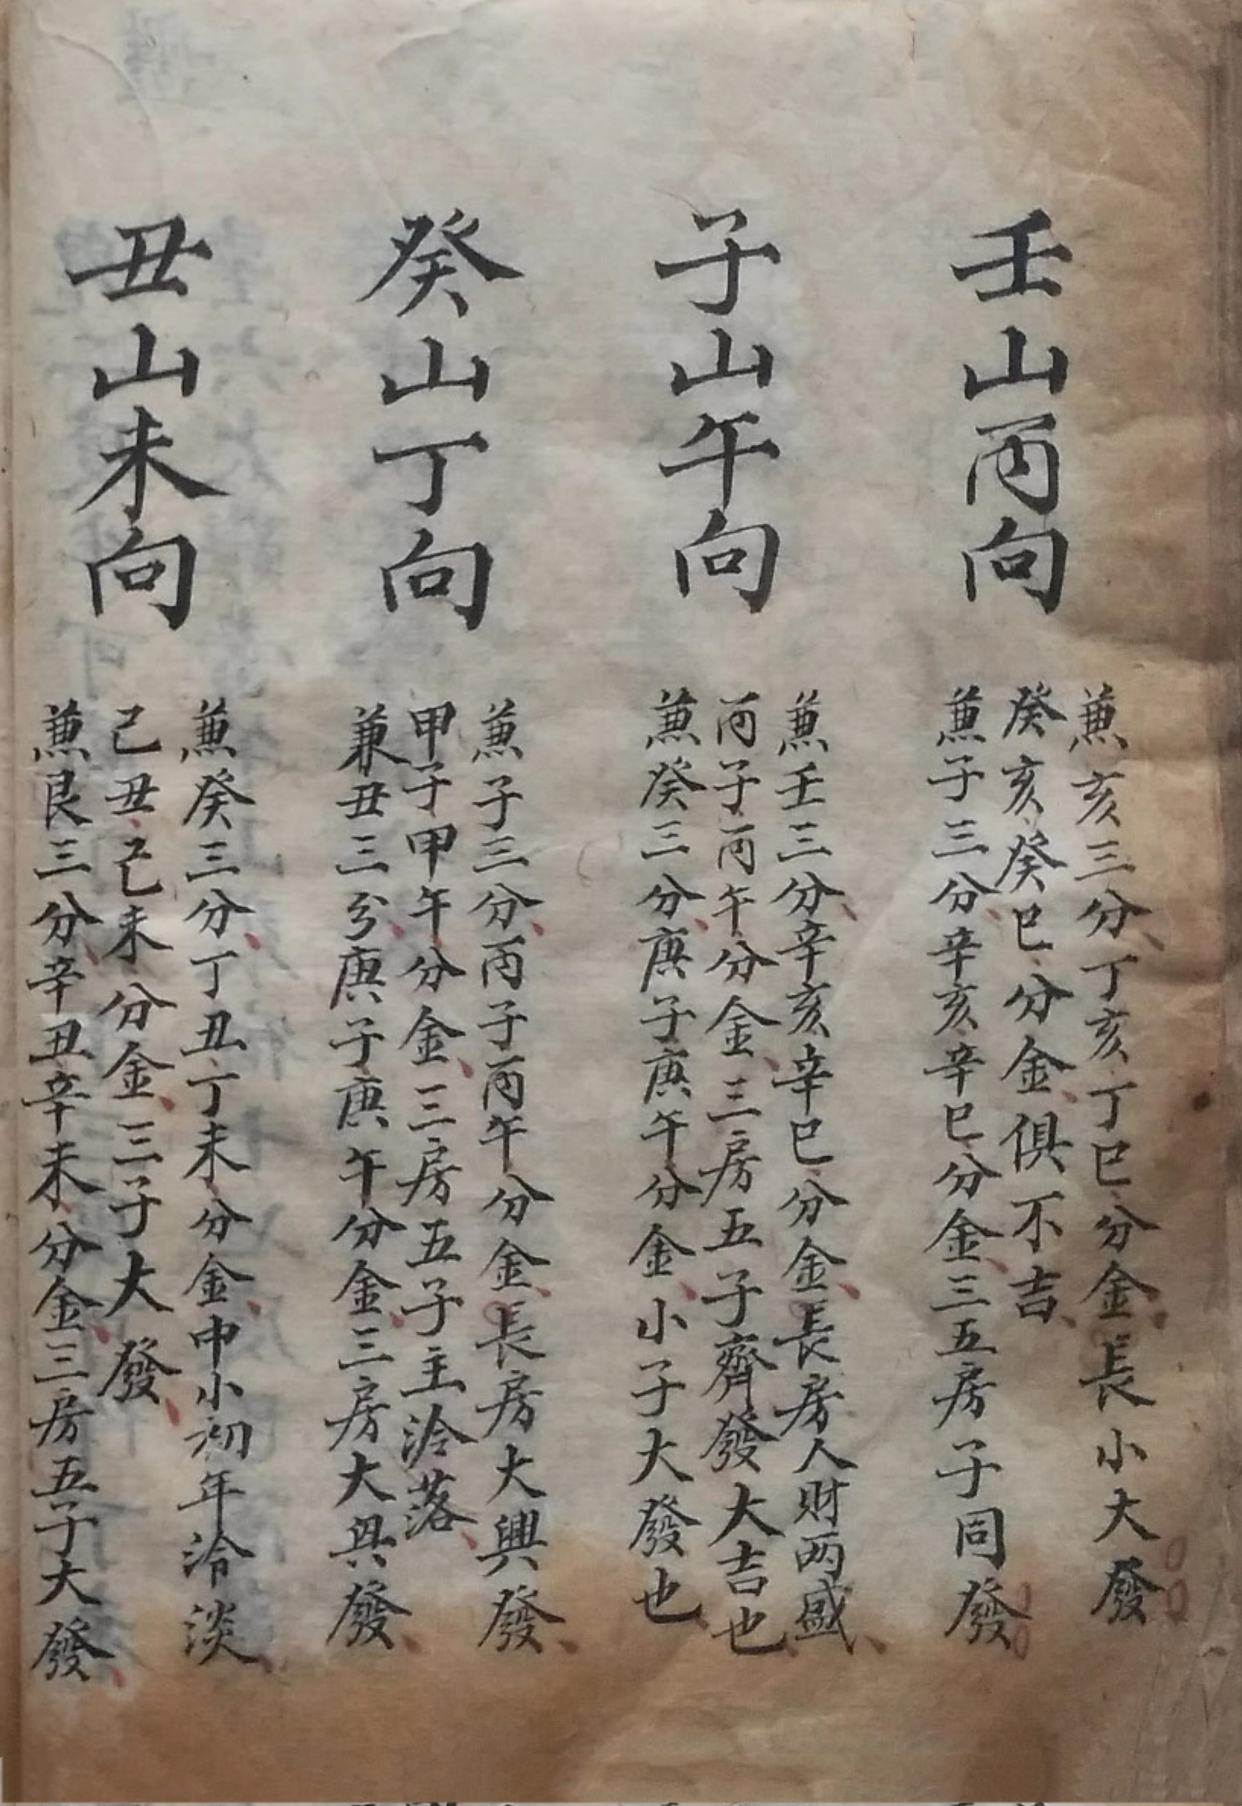 壬山丙向
兼亥三分丁亥丁巳分金長小大發
癸亥癸巳分金俱不吉
兼子三分辛亥辛巳分金三五房子同發
子山午向
兼壬三分辛亥辛巳分金長房人財両盛
丙子丙午分金三房五子齊發大吉也
兼癸三分庚子庚午分金小子大發也
癸山丁向
兼子三分丙子丙午分金長房大興發
甲子甲午分金三房五子主冷落
兼丑三分庚子庚午分金三房大興發
丑山未向
兼癸三分丁丑丁未分金中小初年冷淡
己丑己未分金三子大發
兼艮三分辛丑辛未分金三房五子大發